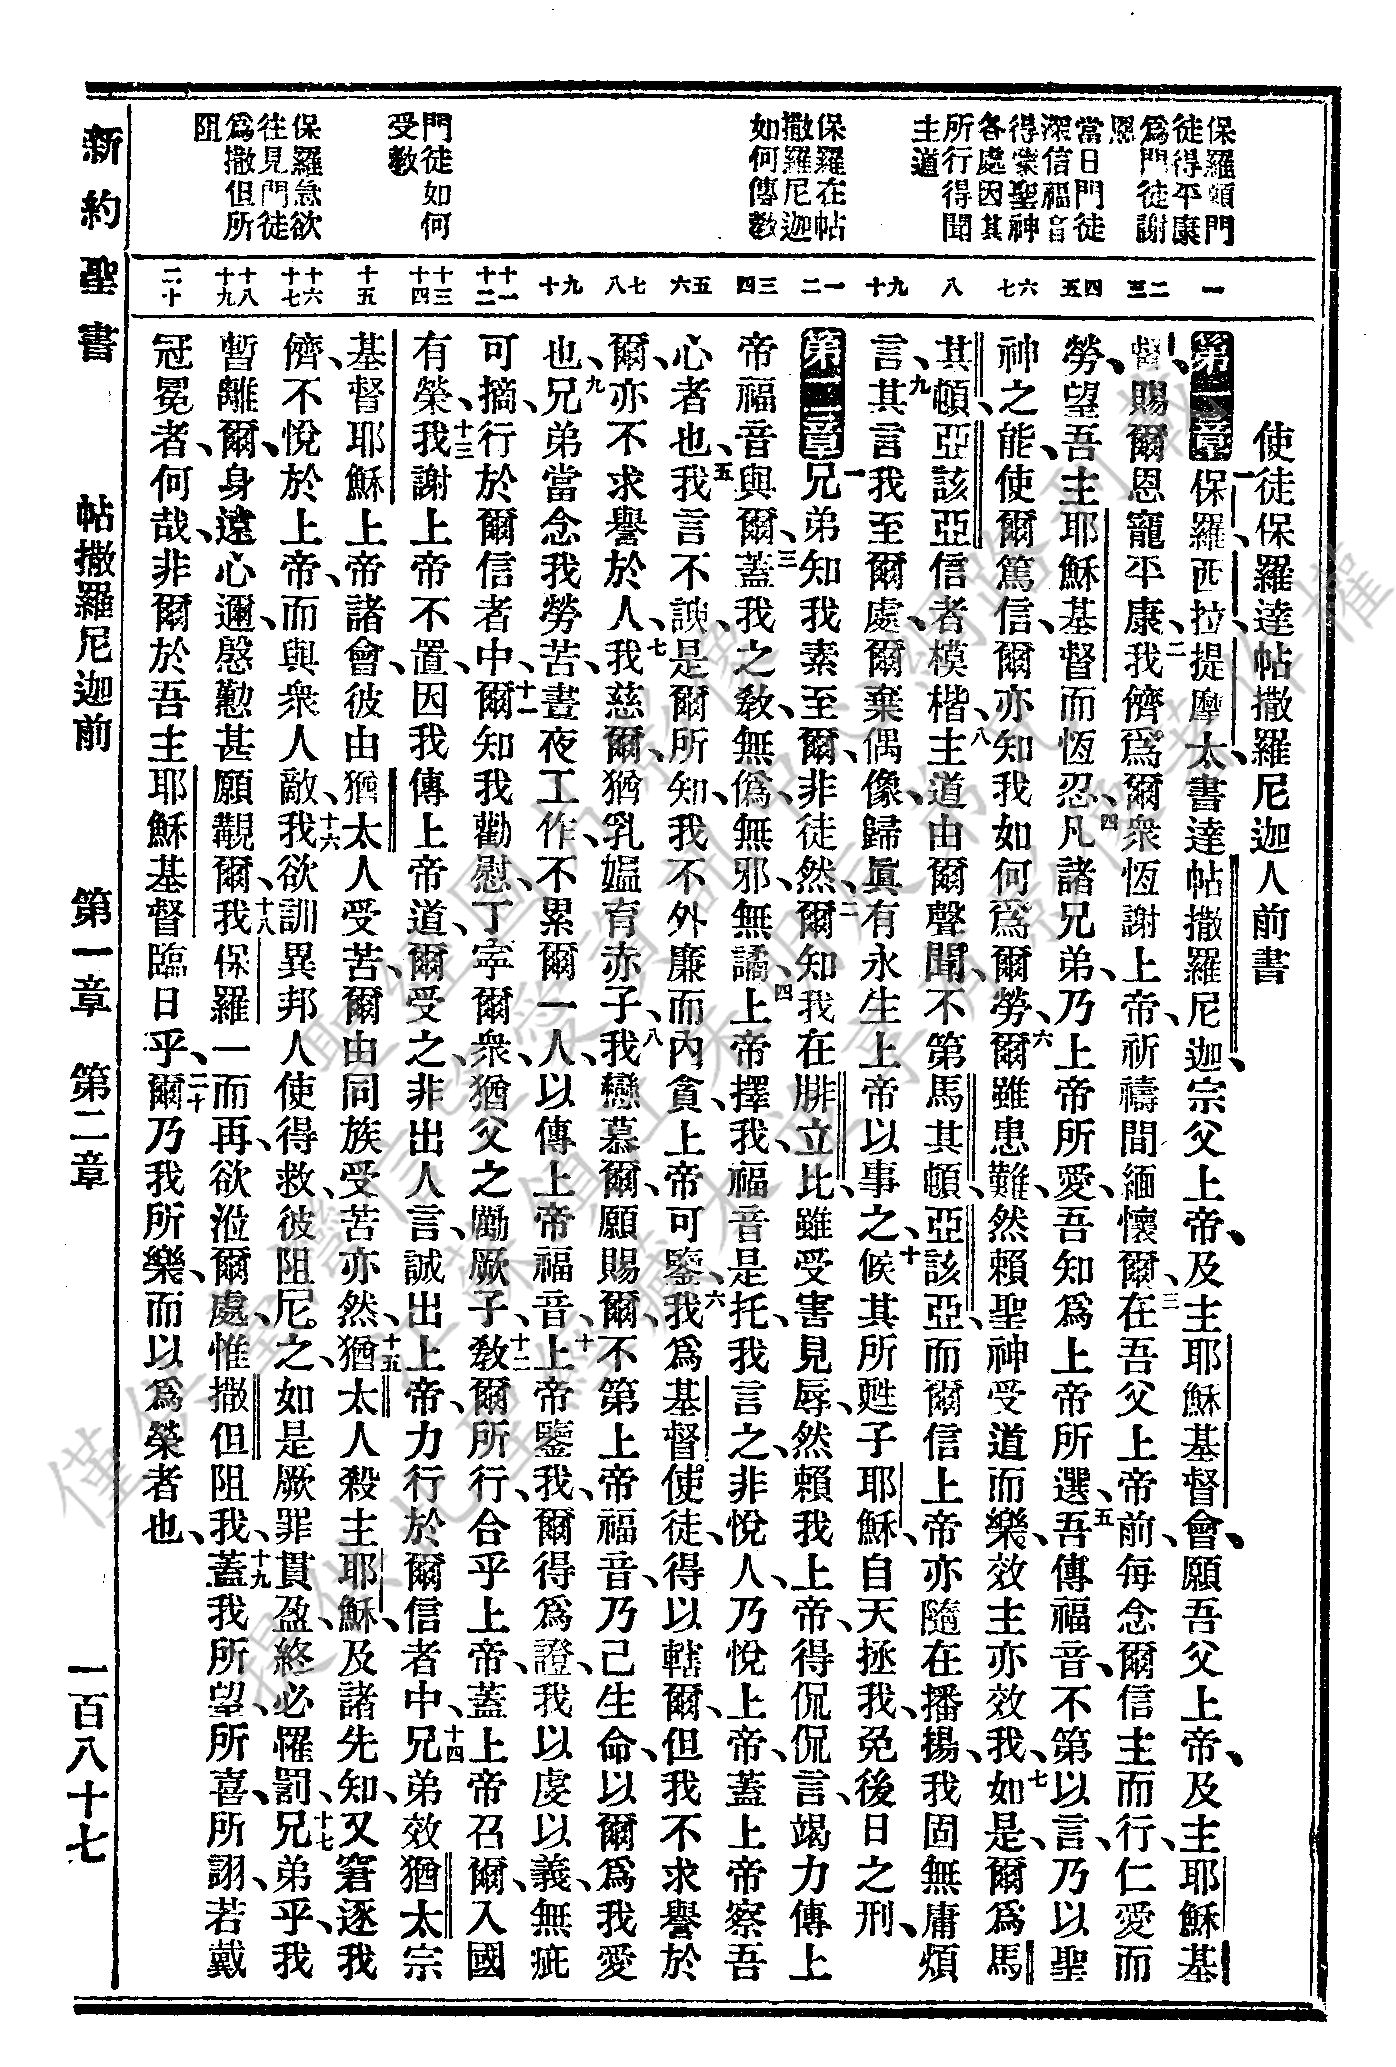 新約聖書 帖撒羅尼迦前 第一章 第二章 一百八十七
保羅願門
徒得平康
爲門徒謝
恩
當日門徒
深信福音
得蒙聖神
各處因其
所行得聞
主道
保羅在帖
撒羅尼迦
如何傳教
門徒如何
受教
保羅急欲
往見門徒
爲撒但所
阻
一 二三 四五 六七 八 九十 一二 三四 五六 七八 九十 十一十二 十三十四 十五 十六十七 十八十九 二十
使徒保羅達帖撒羅尼迦人前書
第一章 一保羅、西拉、提摩太、書達帖撒羅尼迦宗父上帝、及主耶穌基督會、願吾父上帝、及主耶穌基
督、賜爾恩寵平康、二我儕爲爾衆恆謝上帝、祈禱間緬懷爾、三在吾父上帝前、每念爾信主而行、仁愛而
勞、望吾主耶穌基督而恆忍、四凡諸兄弟、乃上帝所愛、吾知爲上帝所選、五吾傳福音、不第以言、乃以聖
神之能、使爾篤信、爾亦知我如何爲爾勞、六爾雖患難、然賴聖神受道而樂、效主亦效我、七如是、爾爲馬
其頓、亞該亞信者模楷、八主道由爾聲聞、不第馬其頓、亞該亞、而爾信上帝亦隨在播揚、我固無庸煩
言、九其言我至爾處、爾棄偶像、歸眞有永生上帝以事之、十候其所甦子耶穌、自天拯我、免後日之刑、
第二章 一兄弟知我素至爾、非徒然、二爾知我在腓立比、雖受害見辱、然賴我上帝、得侃侃言、竭力傳上
帝福音與爾、三蓋我之教、無僞、無邪、無譎、四上帝擇我、福音是托、我言之、非悅人、乃悅上帝、蓋上帝察吾
心者也、五我言不諛、是爾所知、我不外廉而內貪、上帝可鑒、六我爲基督使徒、得以轄爾、但我不求譽於
爾、亦不求譽於人、七我慈爾、猶乳媼育赤子、八我戀慕爾、願賜爾、不第上帝福音、乃己生命、以爾爲我愛
也、九兄弟當念我勞苦、晝夜工作、不累爾一人、以傳上帝福音、十上帝鑒我、爾得爲證、我以虔以義、無疵
可摘、行於爾信者中、十一爾知我勸慰、丁寜爾衆、猶父之勵厥子、十二教爾所行、合乎上帝、蓋上帝召爾、入國
有榮、十三我謝上帝不置、因我傳上帝道、爾受之、非出人言、誠出上帝、力行於爾信者中、十四兄弟效猶太宗
基督耶穌上帝諸會、彼由猶太人受苦、爾由同族受苦亦然、十五猶太人殺主耶穌、及諸先知、又窘逐我
儕、不悅於上帝、而與衆人敵、十六我欲訓異邦人使得救、彼阻尼之、如是厥罪貫盈、終必罹罰、十七兄弟乎、我
暫離爾、身遠心邇、慇懃甚願觀爾、十八我保羅一而再、欲涖爾處、惟撒但阻我、十九蓋我所望、所喜、所詡、若戴
冠冕者、何哉、非爾於吾主耶穌基督臨日乎、二十爾乃我所樂、而以爲榮者也、